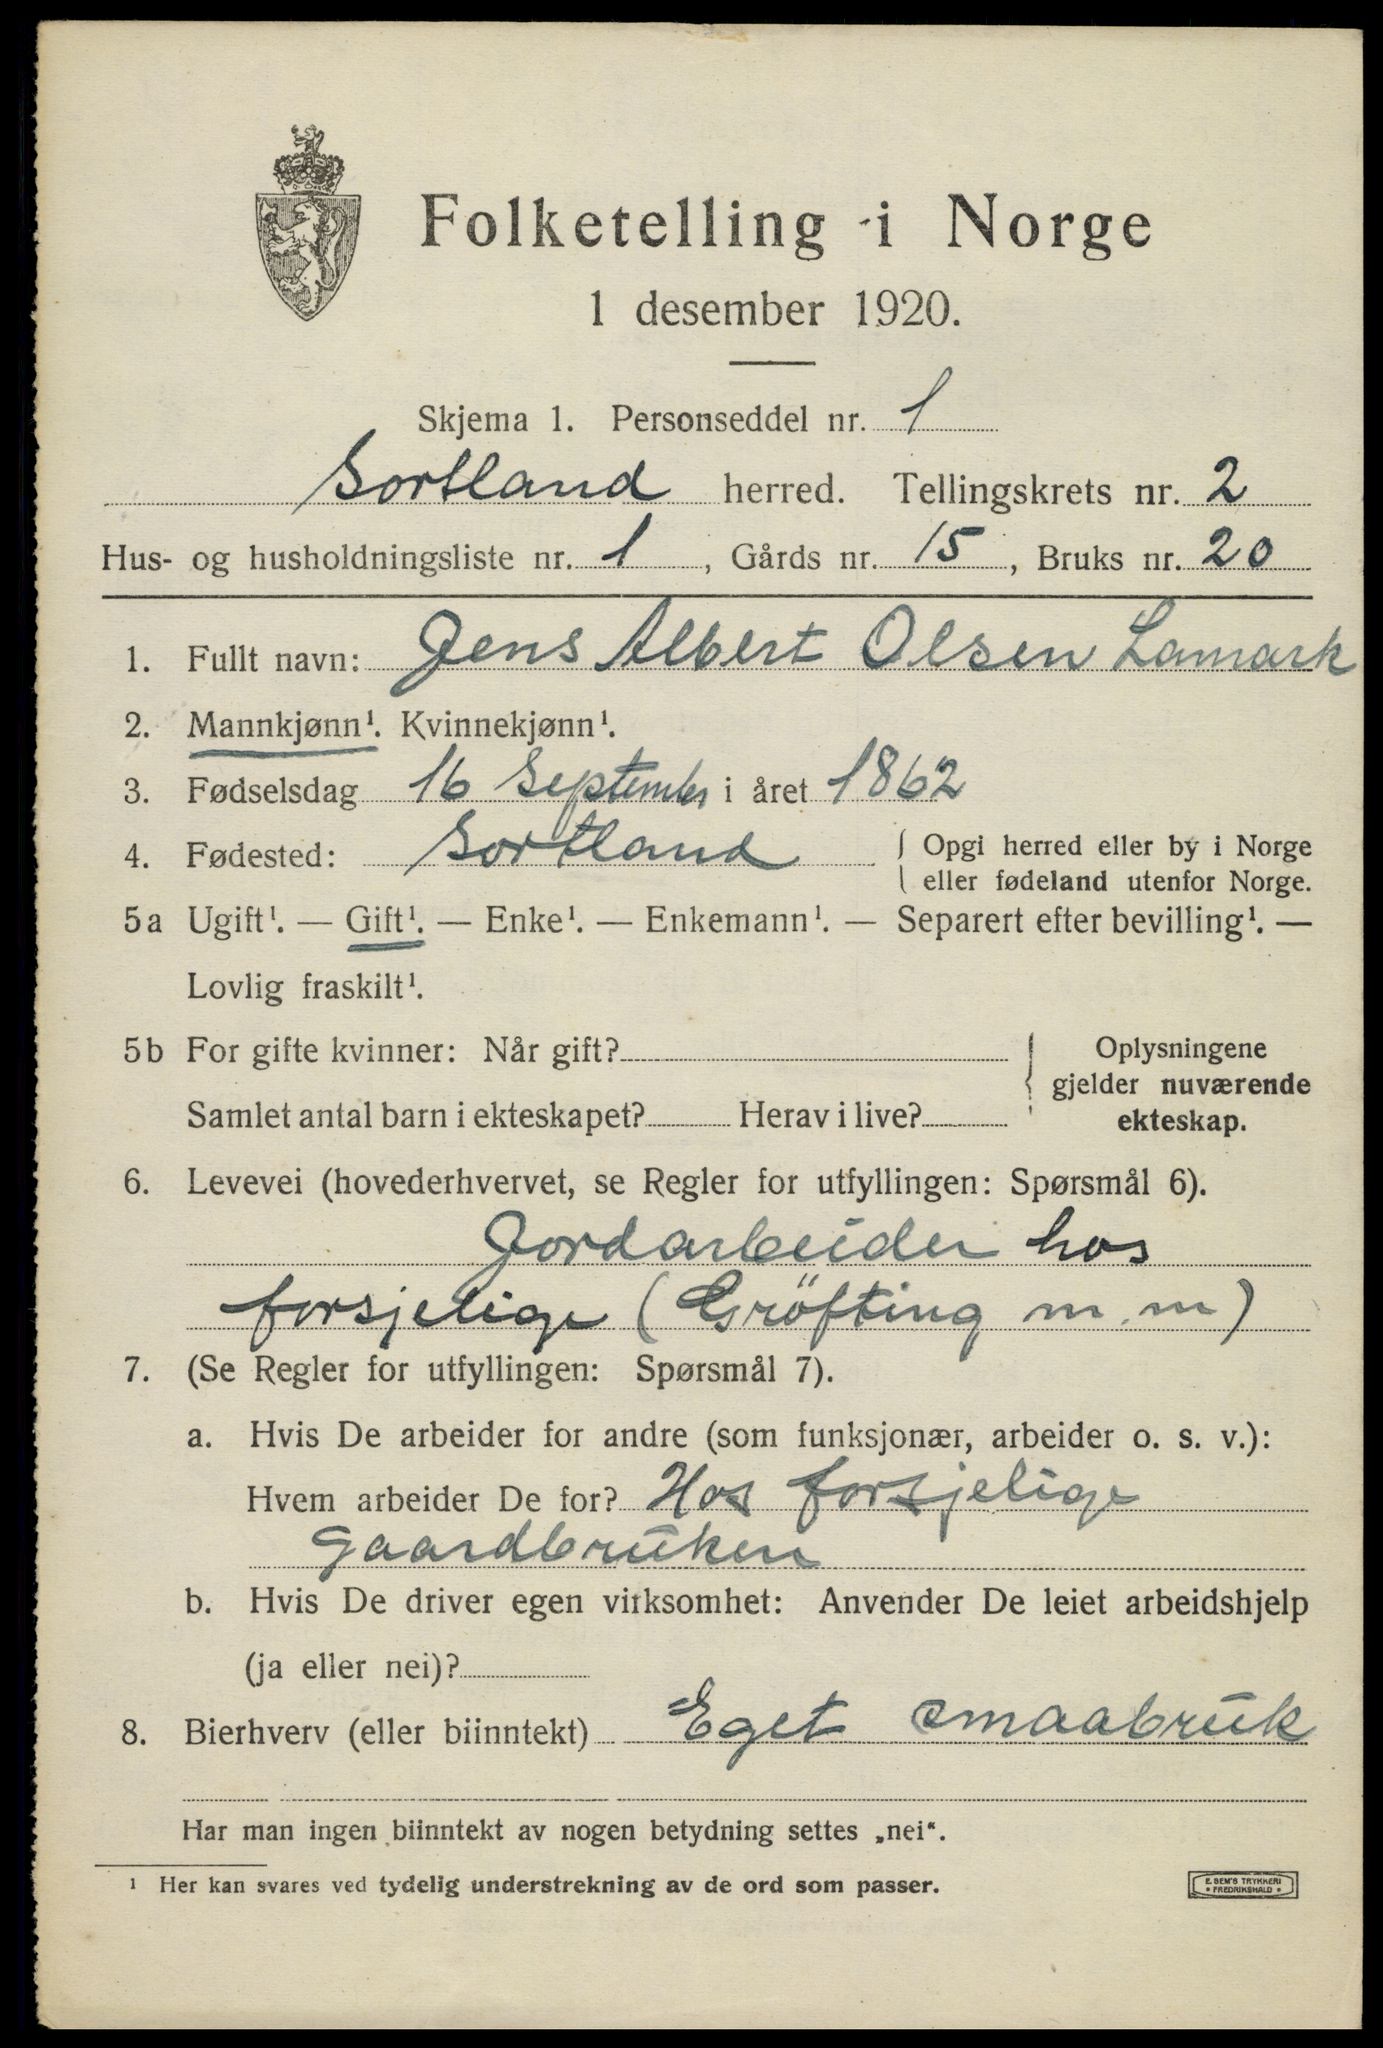 Folketelling i Norge
1 desember 1920.
Skjema 1. Personseddel nr. 1
Sortland herred. Tellingskrets nr. 2
Hus- og husholdningsliste nr. 1, Gårds nr. 15, Bruks nr. 20
1. Fullt navn: Jens Albert Olsen Lamark
2. Mannkjønn¹. Kvinnekjønn¹.
3. Fødselsdag 16 September i året 1862
4. Fødested: Sortland { Opgi herred eller by i Norge
eller fødeland utenfor Norge.
5a Ugift¹. — Gift¹. — Enke¹. — Enkemann¹. — Separert efter bevilling¹. —
Lovlig fraskilt¹.
5b For gifte kvinner: Når gift? } Oplysningene
gjelder nuværende
Samlet antal barn i ekteskapet? Herav i live? ekteskap.
6. Levevei (hovederhvervet, se Regler for utfyllingen: Spørsmål 6).
Jordarbeider hos
forsjelige (Gröfting m.m)
7. (Se Regler for utfyllingen: Spørsmål 7).
a. Hvis De arbeider for andre (som funksjonær, arbeider o. s. v.):
Hvem arbeider De for? Hos forsjelige
gaardbruken
b. Hvis De driver egen virksomhet: Anvender De leiet arbeidshjelp
(ja eller nei)?
8. Bierhverv (eller biinntekt) Eget smaabruk
Har man ingen biinntekt av nogen betydning settes „nei“.
¹ Her kan svares ved tydelig understrekning av de ord som passer.
E. SEM'S TRYKKERI
• FREDRIKSHALD •